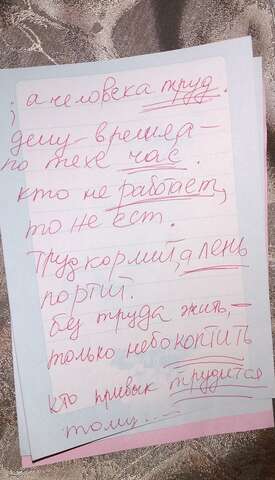 ; а человека труд.
делу время а -
по техе час.
кто не работает,
то не ест.
труд кормит, а лень
портит.
без труда жить, -
только небо коптить
кто привык трудится
тому....